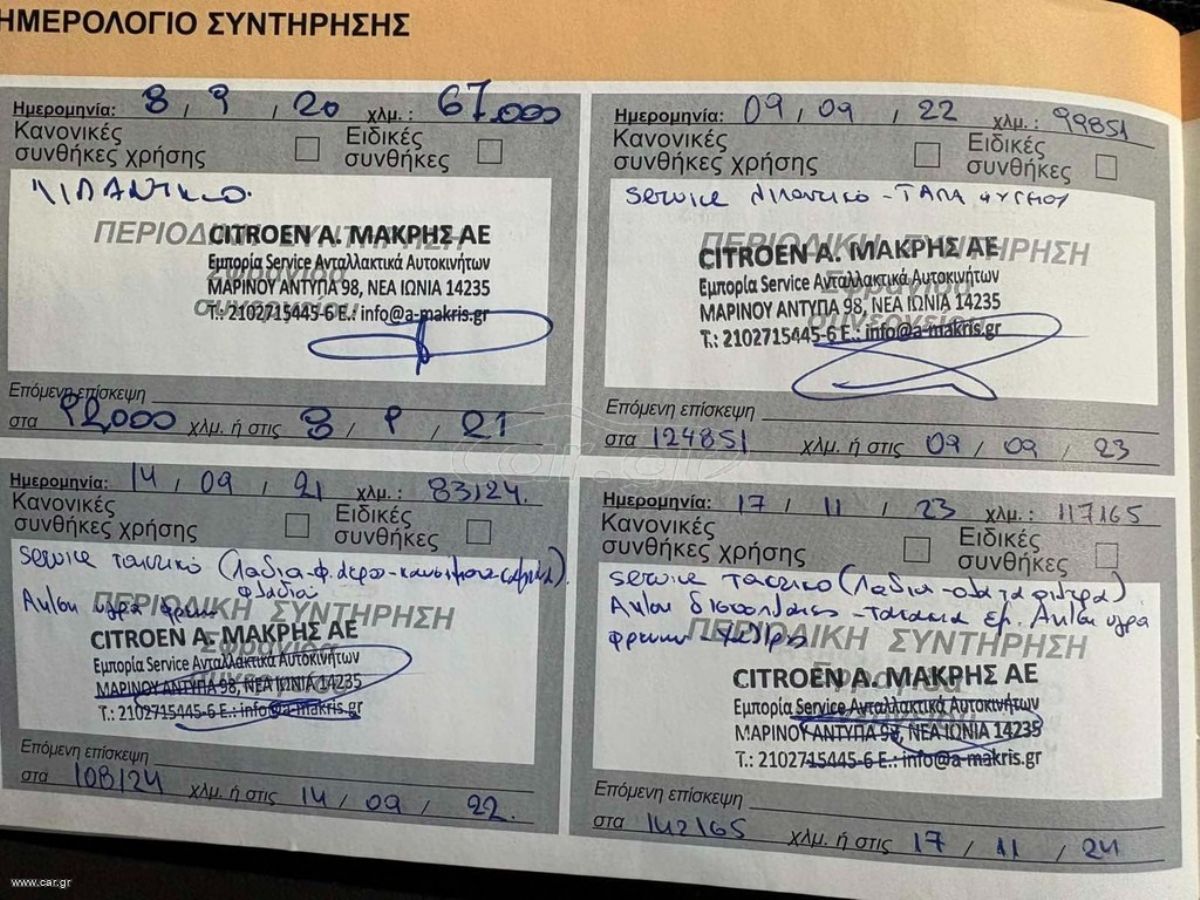 ΗΜΕΡΟΛΟΓΙΟ ΣΥΝΤΗΡΗΣΗΣ
Ημερομηνία: 8 / 9 / 20 χλμ.: 67.000
Κανονικές συνθήκες χρήσης
Ειδικές συνθήκες
ΛΙΠΑΝΤΙΚΟ.
ΠΕΡΙΟΔΙΚΗ ΣΥΝΤΗΡΗΣΗ
Σφραγίδα
συνεργείου
CITROEN Α. ΜΑΚΡΗΣ ΑΕ
Εμπορία Service Ανταλλακτικά Αυτοκινήτων
ΜΑΡΙΝΟΥ ΑΝΤΥΠΑ 98, ΝΕΑ ΙΩΝΙΑ 14235
Τ.: 2102715445-6 Ε.: info@a-makris.gr
Επόμενη επίσκεψη
στα 92,000 χλμ. ή στις 8 / 9 / 21
Ημερομηνία: 14 / 09 / 21 χλμ.: 83124.
Κανονικές συνθήκες χρήσης
Ειδικές συνθήκες
service τακτικό (Λάδια-φ.αερο-καυσιμου-)
Αλ/γη υγρα φρενων
ΠΕΡΙΟΔΙΚΗ ΣΥΝΤΗΡΗΣΗ
Σφραγίδα
συνεργείου
CITROEN Α. ΜΑΚΡΗΣ ΑΕ
Εμπορία Service Ανταλλακτικά Αυτοκινήτων
ΜΑΡΙΝΟΥ ΑΝΤΥΠΑ 98, ΝΕΑ ΙΩΝΙΑ 14235
Τ.: 2102715445-6 Ε.: info@a-makris.gr
Επόμενη επίσκεψη
στα 108124 χλμ. ή στις 14 / 09 / 22.
Ημερομηνία: 09 / 09 / 22 χλμ.: 99851
Κανονικές συνθήκες χρήσης
Ειδικές συνθήκες
service λιπαντικό - ΤΑΠΑ ΨΥΓΕΙΟΥ
ΠΕΡΙΟΔΙΚΗ ΣΥΝΤΗΡΗΣΗ
Σφραγίδα
συνεργείου
CITROEN Α. ΜΑΚΡΗΣ ΑΕ
Εμπορία Service Ανταλλακτικά Αυτοκινήτων
ΜΑΡΙΝΟΥ ΑΝΤΥΠΑ 98, ΝΕΑ ΙΩΝΙΑ 14235
Τ.: 2102715445-6 Ε.: info@a-makris.gr
Επόμενη επίσκεψη
στα 124851 χλμ. ή στις 09 / 09 / 23
Ημερομηνία: 17 / 11 / 23 χλμ.: 117165
Κανονικές συνθήκες χρήσης
Ειδικές συνθήκες
service τακτικο (Λάδια-ολα τα φιλτρα)
Αλ/γη δισκοπλακες - τακακια εμ. Αλ/γη υγρα
φρενων -
ΠΕΡΙΟΔΙΚΗ ΣΥΝΤΗΡΗΣΗ
Σφραγίδα
συνεργείου
CITROEN Α. ΜΑΚΡΗΣ ΑΕ
Εμπορία Service Ανταλλακτικά Αυτοκινήτων
ΜΑΡΙΝΟΥ ΑΝΤΥΠΑ 98, ΝΕΑ ΙΩΝΙΑ 14235
Τ.: 2102715445-6 Ε.: info@a-makris.gr
Επόμενη επίσκεψη
στα 142165 χλμ. ή στις 17 / 11 / 24
car.gr
www.car.gr